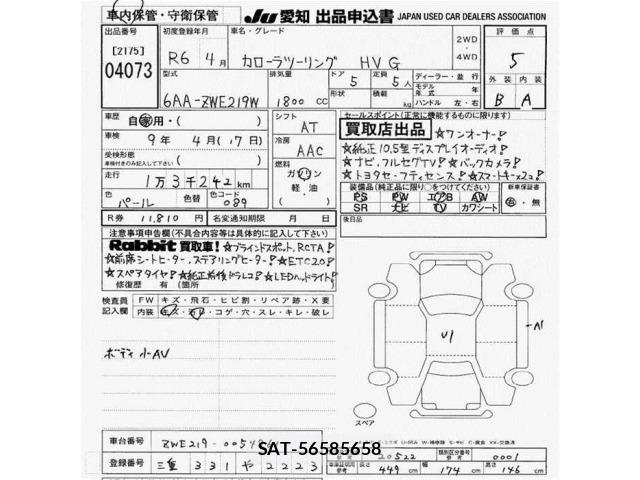 車内保管・守衛保管
Ju 愛知 出品申込書 JAPAN USED CAR DEALERS ASSOCIATION
出品番号
[2175]
04073
初度登録年月
R6 4月
車名・グレード
カローラツーリング HV G
2WD・4WD
評価点
5
型式
6AA-ZWE219W
排気量
1800 CC
ドア
5
形状
定員
5人
積載
kg
ディーラー・並行
モデル年式 年
ハンドル 左・右
外装 内装
B A
車歴
自家用・( )
車検
9年 4月(17日)
受検形態
(車検付きのみ記入して下さい)
シフト
AT
冷房
AAC
燃料
ガソリン
軽油
( )
走行
1万3千242km
色
パール
色替
色コード
089
R券 11,810円
名変通知期限 月 日
セールスポイント(正常に機能するものに限ります)
買取店出品 ☆ワンオーナー!
☆純正10.5型ディスプレイオーディオ!
☆ナビ、フルセグTV! ☆バックカメラ!
☆トヨタセーフティセンス! ☆スマートキー×2コ!
装備品(純正品に限り○をつけてください)
PS PW エアB AW
SR ナビ TV カワシート
新車保証書
有・無
後日品
注意事項申告欄(不具合内容等は具体的に記入して下さい)
Rabbit 買取車! ☆ブラインドスポット、RCTA!
☆前席シートヒーター、ステアリングヒーター! ☆ETC2.0!
☆スペアタイヤ! ☆純正前後ドラレコ! ☆LEDヘッドライト!
修復歴 有 (箇所
検査員記入欄
FW キズ・飛石・ヒビ割・リペア跡・X要
内装 キズ・汚れ・コゲ・穴・スレ・キレ・破レ
ボディ小AV
U1
A1
スペア
車台番号 ZWE219-
SAT-56585658
登録番号 三重 331 や 2223
20522
類別区分番号
0001
長さ 449 cm 幅 174 cm 高さ 146 cm